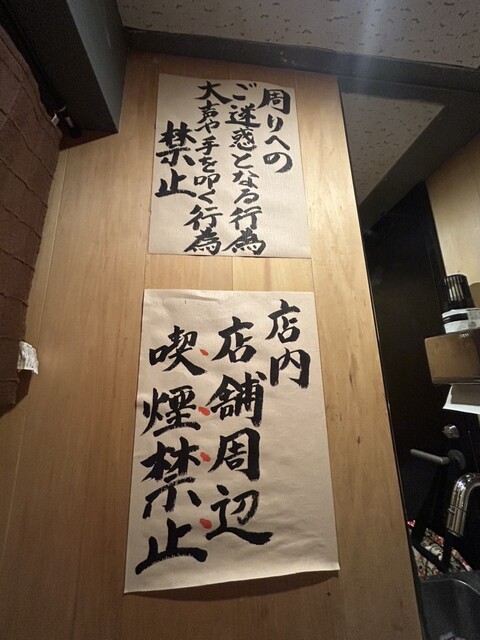 周りへの
ご迷惑となる行為
大声や手を叩く行為
禁止
店内
店舗周辺
喫煙禁止